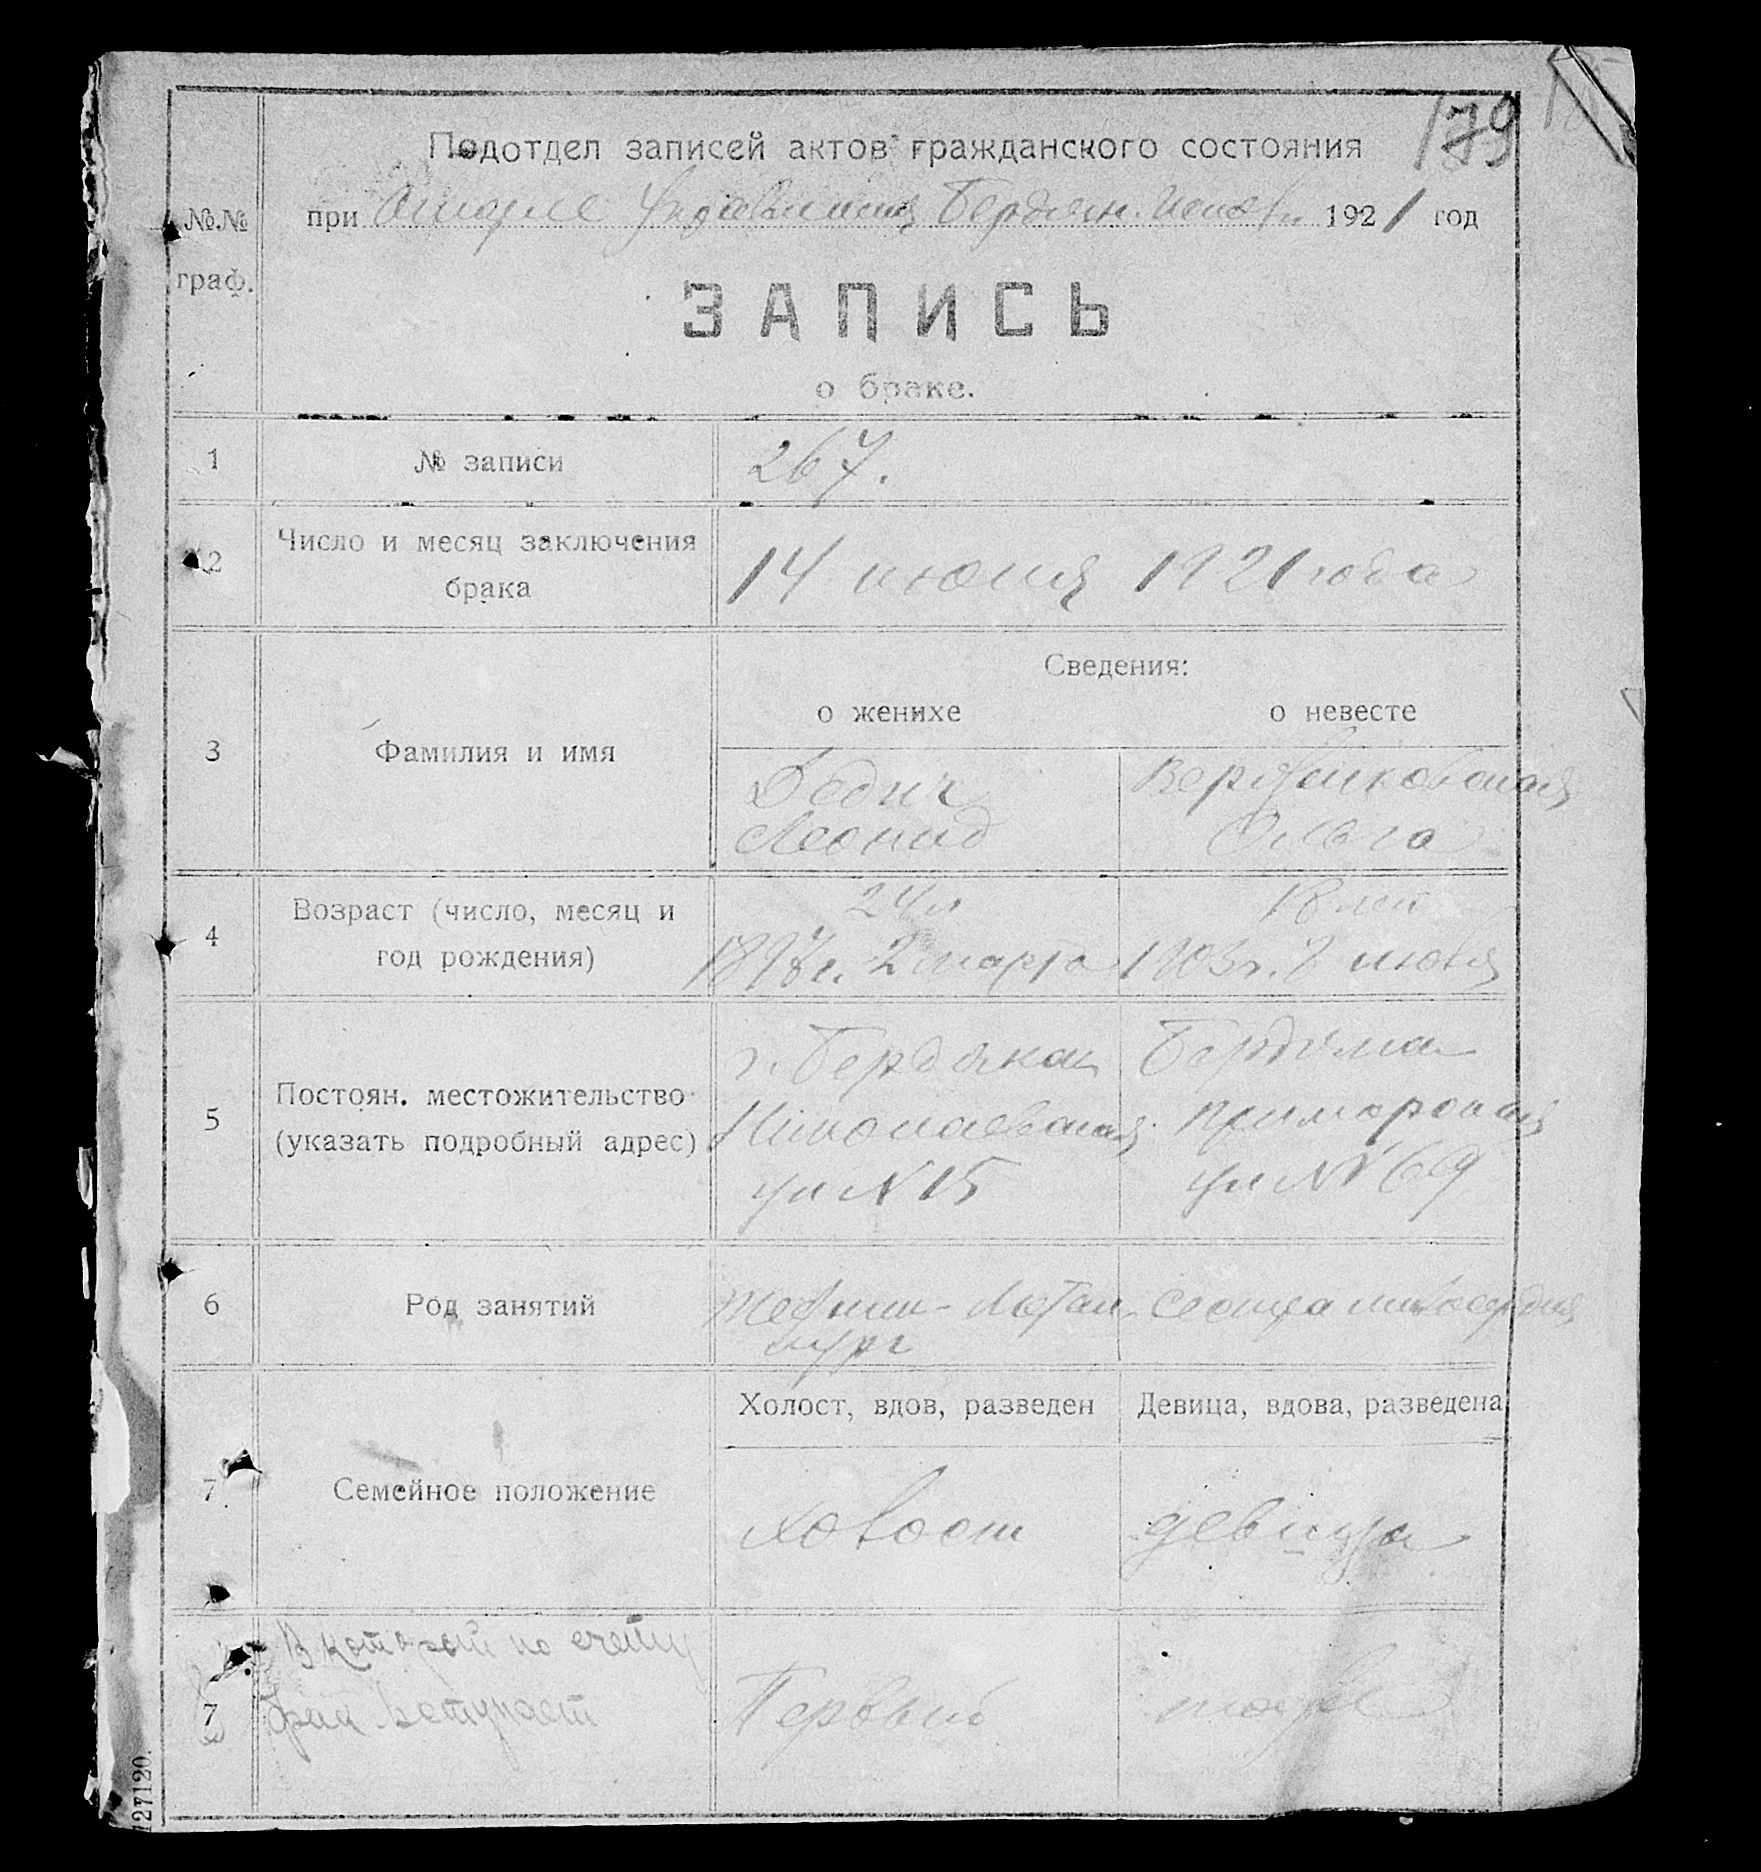 179
Подотдел записей актов гражданского состояния
при Отделе Управления Бердян. 1921 год
№№
граф.
ЗАПИСЬ
о браке.
1 № записи 267.
2 Число и месяц заключения
брака
14 июня 1921 года
Сведения:
о женихе о невесте
3 Фамилия и имя
Бедич
Леонид
Ольга
4 Возраст (число, месяц и
год рождения)
24 л 18 лет
1897 г. 2 марта 1903 г.
5 Постоян. местожительство
(указать подробный адрес)
г. Бердянск Бердянск
Николаевская Приморская
ул N 15 ул N 69
6 Род занятий
Техник-Метал- Сестра милосердия
лург
Холост, вдов, разведен Девица, вдова, разведена
7 Семейное положение
холост девица
В который по счету
7 брак вступает
Первый тоже
127120.